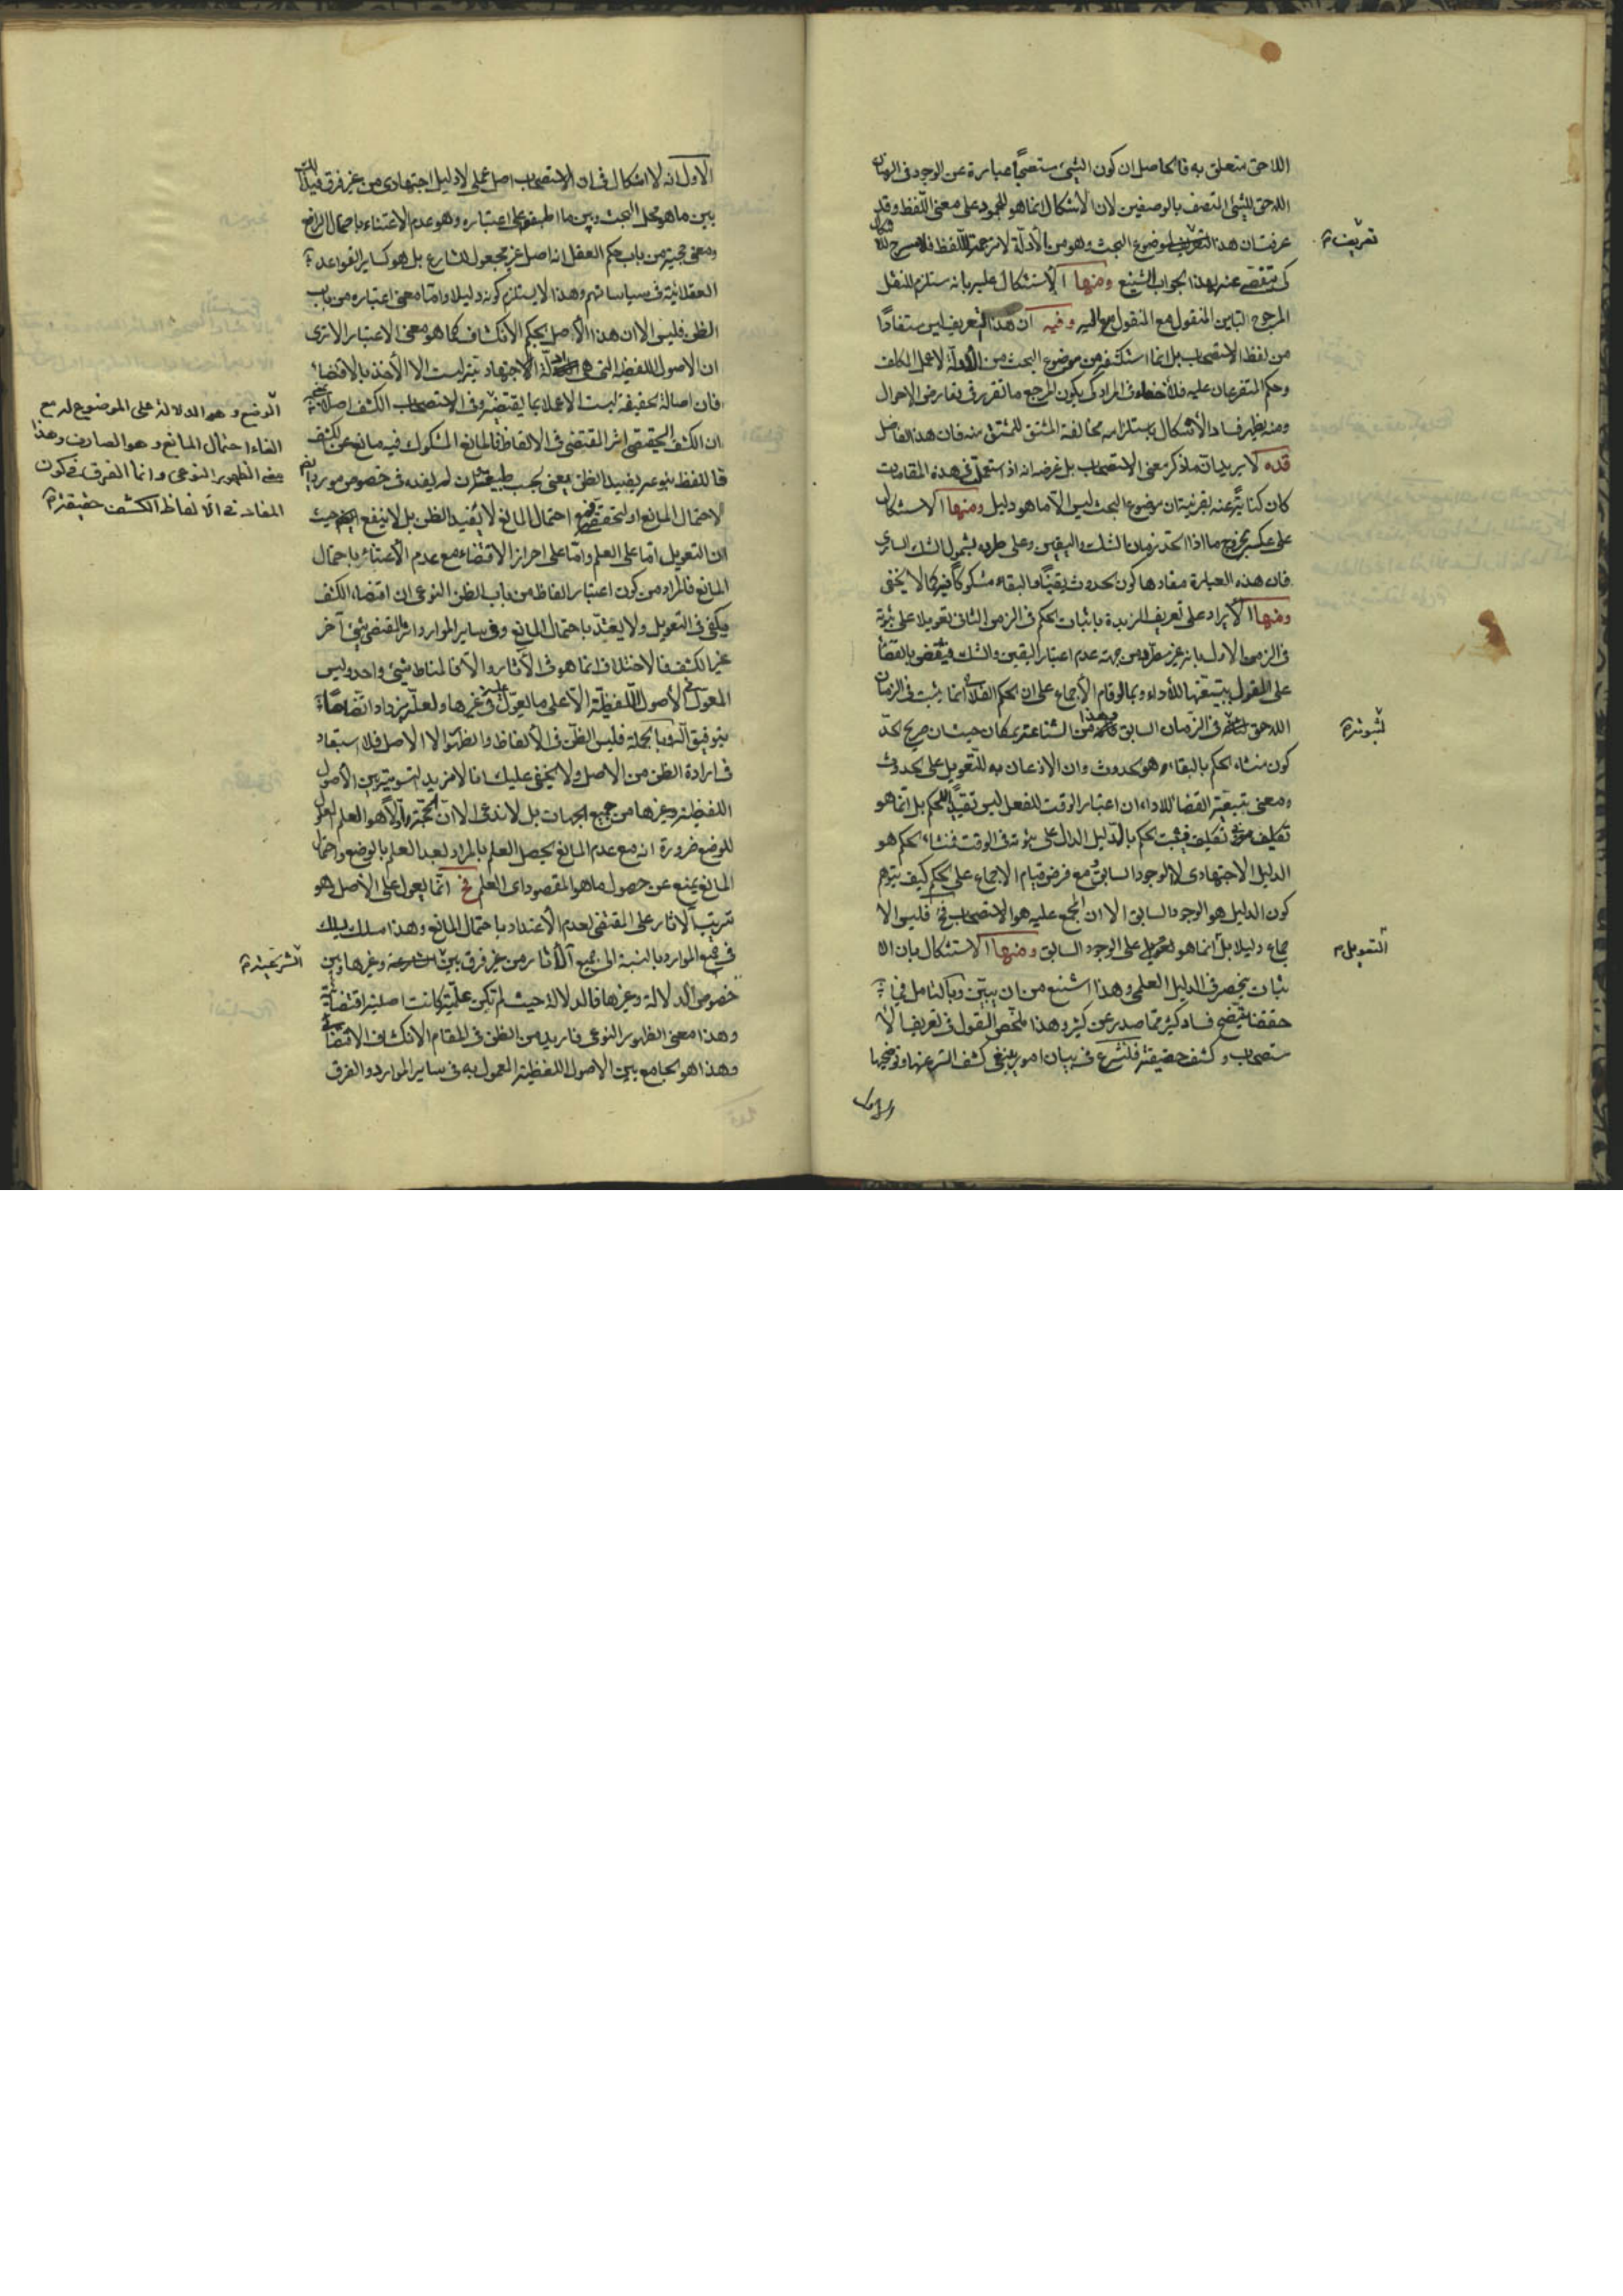 اللاحق متعلق به فالحاصل ان كون الشيئ مستصحبًا عبارة عن الوجود في الزمان
اللاحق للشيئ المتصف بالوصفين لان الاشكال انما هو للجمود على معنى اللفظ وقد
عرفت ان هذا التعريف لموضوع البحث وهو من الأدلة لا ترجمة للفظ فلا مسرح للاشكال
كى يتفصى عنه بهذا الجواب الشنيع ومنها الاستشكال عليه بانه يستلزم للنقل
المرجوح لتباين المنقول مع المنقول اليه وفيه ان هذا التعريف ليس مستفادًا
من لفظ الاستصحاب بل انما استكشف من موضوع البحث من الأدلة لا عمل المكلف
وحكم المتفرعان عليه فلا خفاء في المراد كى يكون المرجع ما تقرر في تعارض الاحوال
ومنه يظهر فساد الأشكال باستلزامه مخالفة المشتق للمشتق منه فان هذا الفاضل
قده لا يريد بيان ما ذكر معنى الاستصحاب بل غرضه انه اذا استعمل في هذه المقامات
كان كناية عنه بقرينة ان موضوع البحث ليس الا ما هو دليل ومنها الاستشكال
على عكسه بخروج ما اذا اتحد زمان الشك واليقين وعلى طرده بشمول الشك السارى
فان هذه العبارة مفادها كون الحدوث يقينًا والبقاء مشكوكًا فيه كما لا يخفى
ومنها الايراد على تعريف الزبدة باثبات الحكم في الزمن الثاني تعويلا على ثبوته
في الزمن الاول بانه غير مطرد من جهة عدم اعتبار اليقين والشك فينتقض بالقضاء
على القول بتبعيتها للأداء وبما لو قام الأجماع على ان الحكم الفلاني انما يثبت في الزمان
اللاحق لثبوته في الزمان السابق وهذا من الشناعة بمكان حيث ان صريح الحد
كون منشاء الحكم بالبقاء هو الحدوث وان الاذعان به للتعويل على الحدوث
ومعنى تبعية القضاء للاداء ان اعتبار الوقت للفعل ليس تقييدًا للحكم بل انما هو
تكليف في تكليف فيثبت الحكم بالدليل الدال على ثبوته في الوقت فمنشاء الحكم هو
الدليل الاجتهادى لا الوجود السابق ومع فرض قيام الاجماع على الحكم كيف يتوهم
كون الدليل هو الوجود السابق الا ان المجمع عليه هو الاستصحاب فح فليس الا
جماع دليلا بل انما هو التعويل على الوجود السابق ومنها الاستشكال بان الا
ثبات ينحصر في الدليل العلمى وهذا اشنع من ان يبين وبالتامل فيما
حققنا يتضح فساد كثير مما صدر عن كثير وهذا ملخص القول في تعريف الا
ستصحاب وكشف حقيقته فلنشرع في بيان امور ينبغى كشف الستر عنها وتوضيحها
الاول
تعريف
لثبوته
التعويل
الاول انه لا اشكال في ان الاستصحاب اصل عملى لا دليل اجتهادى من غير فرق
بين ما هو محل البحث وبين ما اطبقوا على اعتباره وهو عدم الاعتناء باحتمال الرافع
ومعنى حجيته من باب حكم العقل انه اصل غير مجعول للشارع بل هو كساير القواعد
العقلائية في سياساتهم وهذا لا يستلزم كونه دليلا واما معنى اعتباره من باب
الظن فليس الا ان هذا الأصل بحكم الانكشاف كما هو معنى الاعتبار الا ترى
ان الاصول اللفظية التى هى ادلة الاجتهادية ليست الا الأخذ بالاقتضاء
فان اصالة الحقيقة ليست الا عملا بما يقتضيه وفي الاستصحاب الكشف اصلا
ان الكشف الحقيقى اثر المقتضى في الالفاظ فالمانع المشكوك فيه مانع عن الكشف
فاللفظ بنوعه يفيد الظن بمعنى بحسب طبيعته ان لم يفده في خصوص مورد
لاحتمال المانع او لتحققه فمع احتمال المانع لا يفيد الظن بل لا ينفع حيث
ان التعويل اما على العلم واما على احراز الاقتضاء مع عدم الأعتناء باحتمال
المانع فالمراد من كون اعتبار الفاظ من باب الظن النوعى ان اقتضاء الكشف
يكفى في التعويل ولا يعتد باحتمال المانع وفي ساير الموارد اثر المقتضى شيئ آخر
غير الكشف فالاختلاف انما هو في الآثار والا فالمناط شيئ واحد وليس
المعول في الأصول اللفظية الا على ما يعول عليه في غيرها ولعله يزداد اتضاحًا
بتوفيق الله وبالجملة فليس الظن في الألفاظ والظهور الا الاصل فلا استبعاد
في ارادة الظن من الاصل ولا يخفى عليك انا لا نريد التسوية بين الأصول
اللفظية وغيرها من جميع الجهات بل لا ندعى الا ان الحجة اولًا هو العلم
للوضع ضرورة انه مع عدم المانع يحصل العلم بالمراد بعد العلم بالوضع واحتمال
المانع يمنع عن حصول ما هو المقصود اى العلم فح انما يعول على الأصل وهو
ترتيب آلاثار على المقتضى لعدم الأعتداد باحتمال المانع وهذا مسلك
في جميع الموارد بالنسبة الى جميع آلاثار من غير فرق بين الشرعية وغيرها وبين
خصوص الدلالة وغيرها فالدلالة حيث لم تكن علمية كانت اصلية اقتضائية
وهذا معنى الظهور النوعى فاريد من الظن في المقام الانكشاف الاقتضائى
وهذا هو الجامع بين الاصول اللفظية المعمول به في ساير الموارد والفرق
الوضع وهو الدلالة على الموضوع له مع
الغاء احتمال المانع وهو الصارف وهذا
معنى الظهور النوعى وانما الفرق في كون
المفاد في الالفاظ الكشف حقيقة
الشرعية